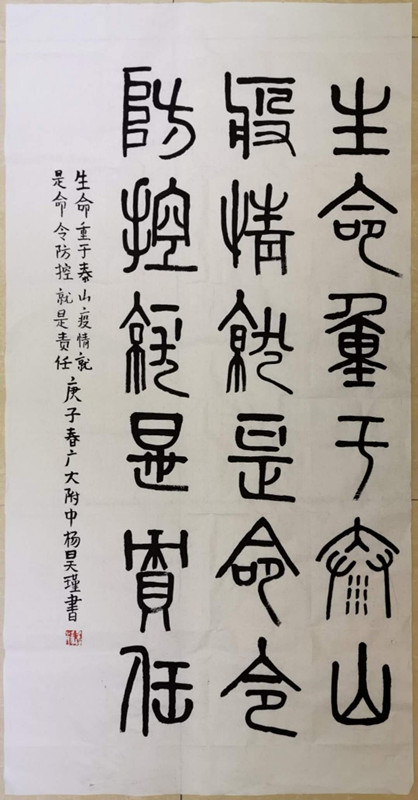 生命重于泰山
疫情就是命令
防控就是责任
生命重于泰山疫情就
是命令防控就是责任
庚子春广大附中杨昊瑾書